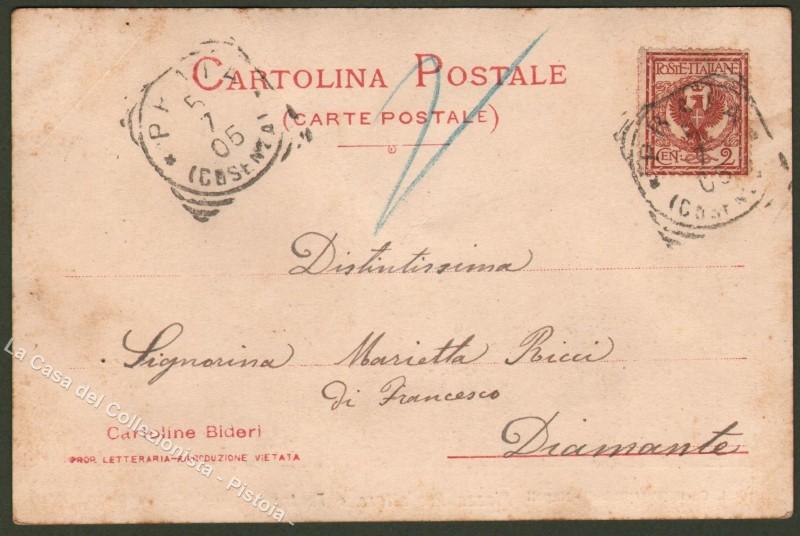 CARTOLINA POSTALE
(CARTE POSTALE)
PRAIA
5
1
05
(COSENZA)
POSTE·ITALIANE
CEN. 2
(COSENZ
Distintissima
Signorina Marietta Ricci
di Francesco
Diamante
Cartoline Bideri
PROP. LETTERARIA-RIPRODUZIONE VIETATA
La Casa del Collezionista - Pistoia -